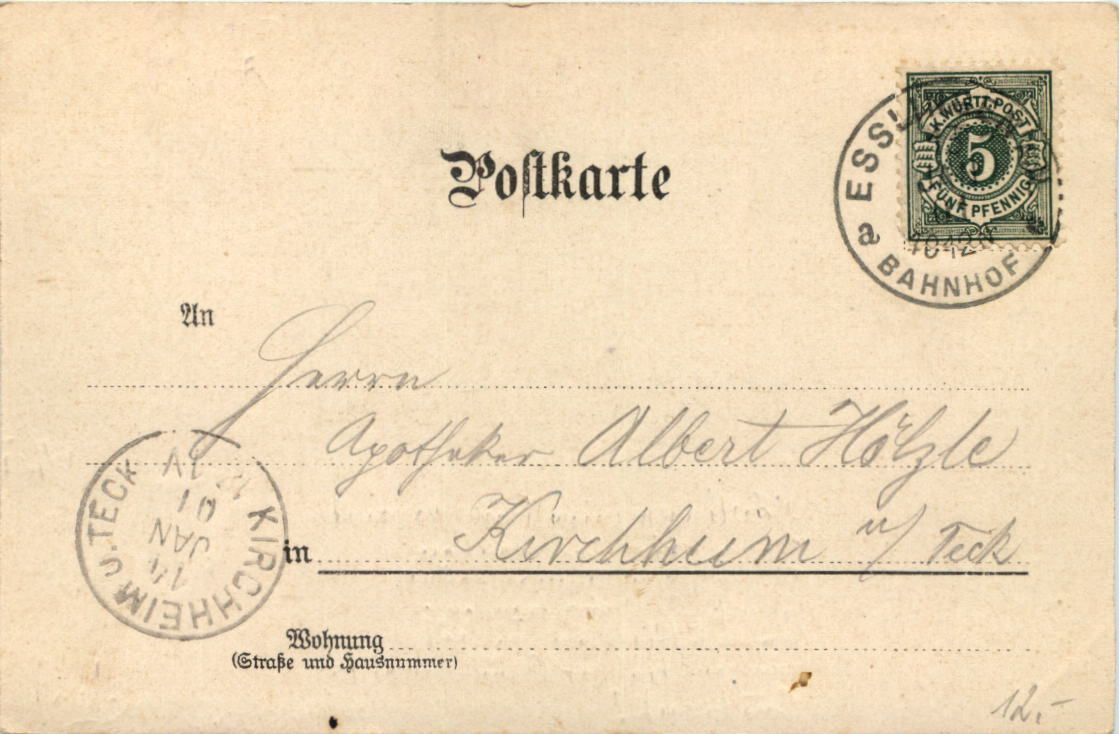 Postkarte
K. WÜRTT. POST
5
FÜNF PFENNIG
a
BAHNHOF
An
Herrn
Apotheker Albert Hölzle
in Kirchheim u/ Teck
KIRCHHEIM U. TECK
14
JAN
01
IV
Wohnung
(Straße und Hausnummer)
12.-